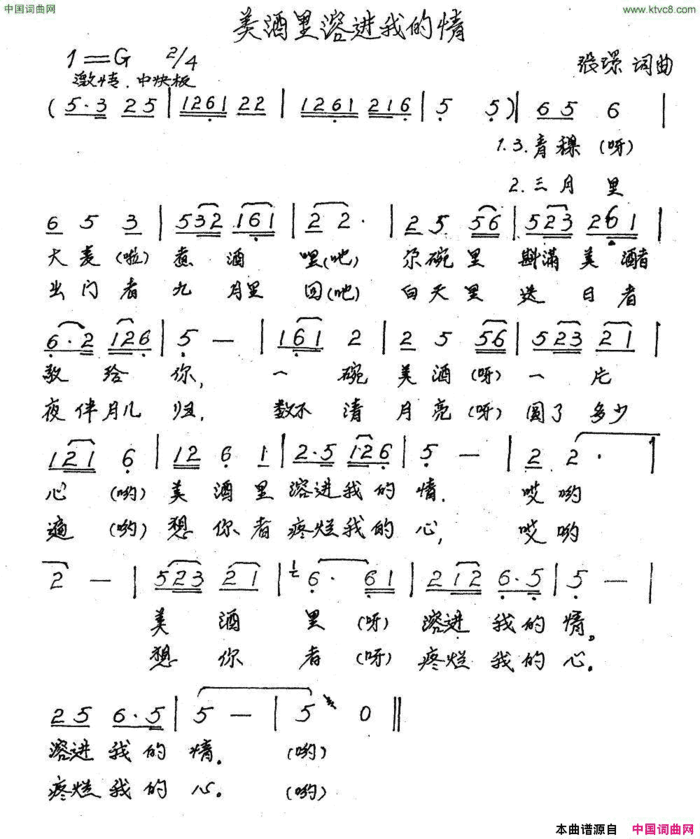 中国词曲网
www.ktvc8.com
美酒里溶进我的情
1=G 2/4
张璟 词曲
激情.中快板
(5·3 25 | 1261 22 | 1261 216 | 5 5) | 65 6 |
1.3.青稞(呀)
2.三月里
6 5 3 | 532 161 | 2 2· | 25 56 | 523 261 |
大麦(啦)煮酒嘿(吔) 尕碗里斟满美醋
出门者九月里回(吔) 白天里送日者
6·2 126 | 5 — | 161 2 | 2 5 56 | 523 21 |
敬给你, 一碗美酒(呀)一片
夜伴月儿归, 数不清月亮(呀)圆了多少
121 6 | 12 6 1 | 2·5 126 | 5 — | 2 2· |
心(哟)美酒里溶进我的情. 哎哟
遍(哟)想你者疼烂我的心, 哎哟
2 — | 523 21 | 6· 61 | 212 6·5 | 5 — |
美酒里(呀)溶进我的情。
想你者(呀)疼烂我的心.
25 6·5 | 5 — | 5 0 ‖
溶进我的情. (哟)
疼烂我的心. (哟)
本曲谱源自 中国词曲网